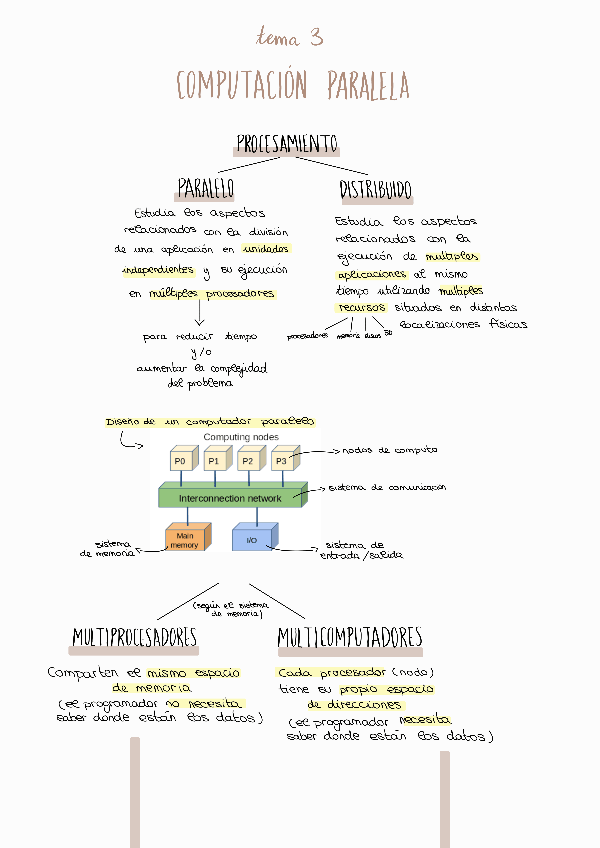 tema 3
COMPUTACIÓN PARALELA
PROCESAMIENTO
PARALELO
Estudia los aspectos
relacionados con la división
de una aplicación en unidades
independientes y su ejecución
en múltiples procesadores
para reducir tiempo
y/o
aumentar la complejidad
del problema
DISTRIBUIDO
Estudia los aspectos
relacionados con la
ejecución de multiples
aplicaciones al mismo
tiempo utilizando multiples
recursos situados en distintas
localizaciones físicas
procesadores memoria discos BD
Diseño de un computador paralelo
Computing nodes
P0 P1 P2 P3
nodos de computo
Interconnection network
sistema de comunicación
Main
memory
I/O
sistema
de memoria
sistema de
entrada/salida
(según el sistema
de memoria)
MULTIPROCESADORES
Comparten el mismo espacio
de memoria
(el programador no necesita
saber donde están los datos)
MULTICOMPUTADORES
Cada procesador (nodo)
tiene su propio espacio
de direcciones
(el programador necesita
saber donde están los datos)